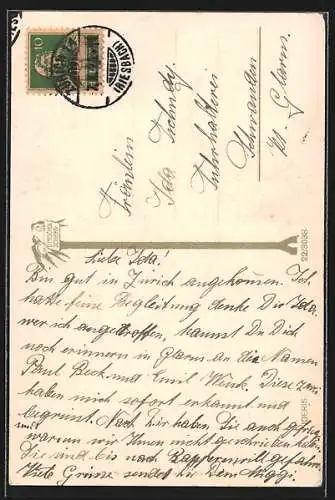 10
(RIESBACH)
Fräulein
Ida Tschudy
Fuhrhalterei
Schwanden
Kt. Glarus
22/3038
Liebe Ida!
Bin gut in Zürich angekommen. Ich
hatte feine Begleitung denke Dir Ida
wer ich angetroffen, kannst Du Dich
noch erinnern in Glarus an die Namen
Paul Beck und Emil Wenk. Diese zwei
haben mich sofort erkannt und
begrüsst. Nach Dir haben sie auch gefragt
und warum wir Ihnen nicht geschrieben
Sie sind bis nach Rapperswil gefahren
Viele Grüsse sendet Dir Dein